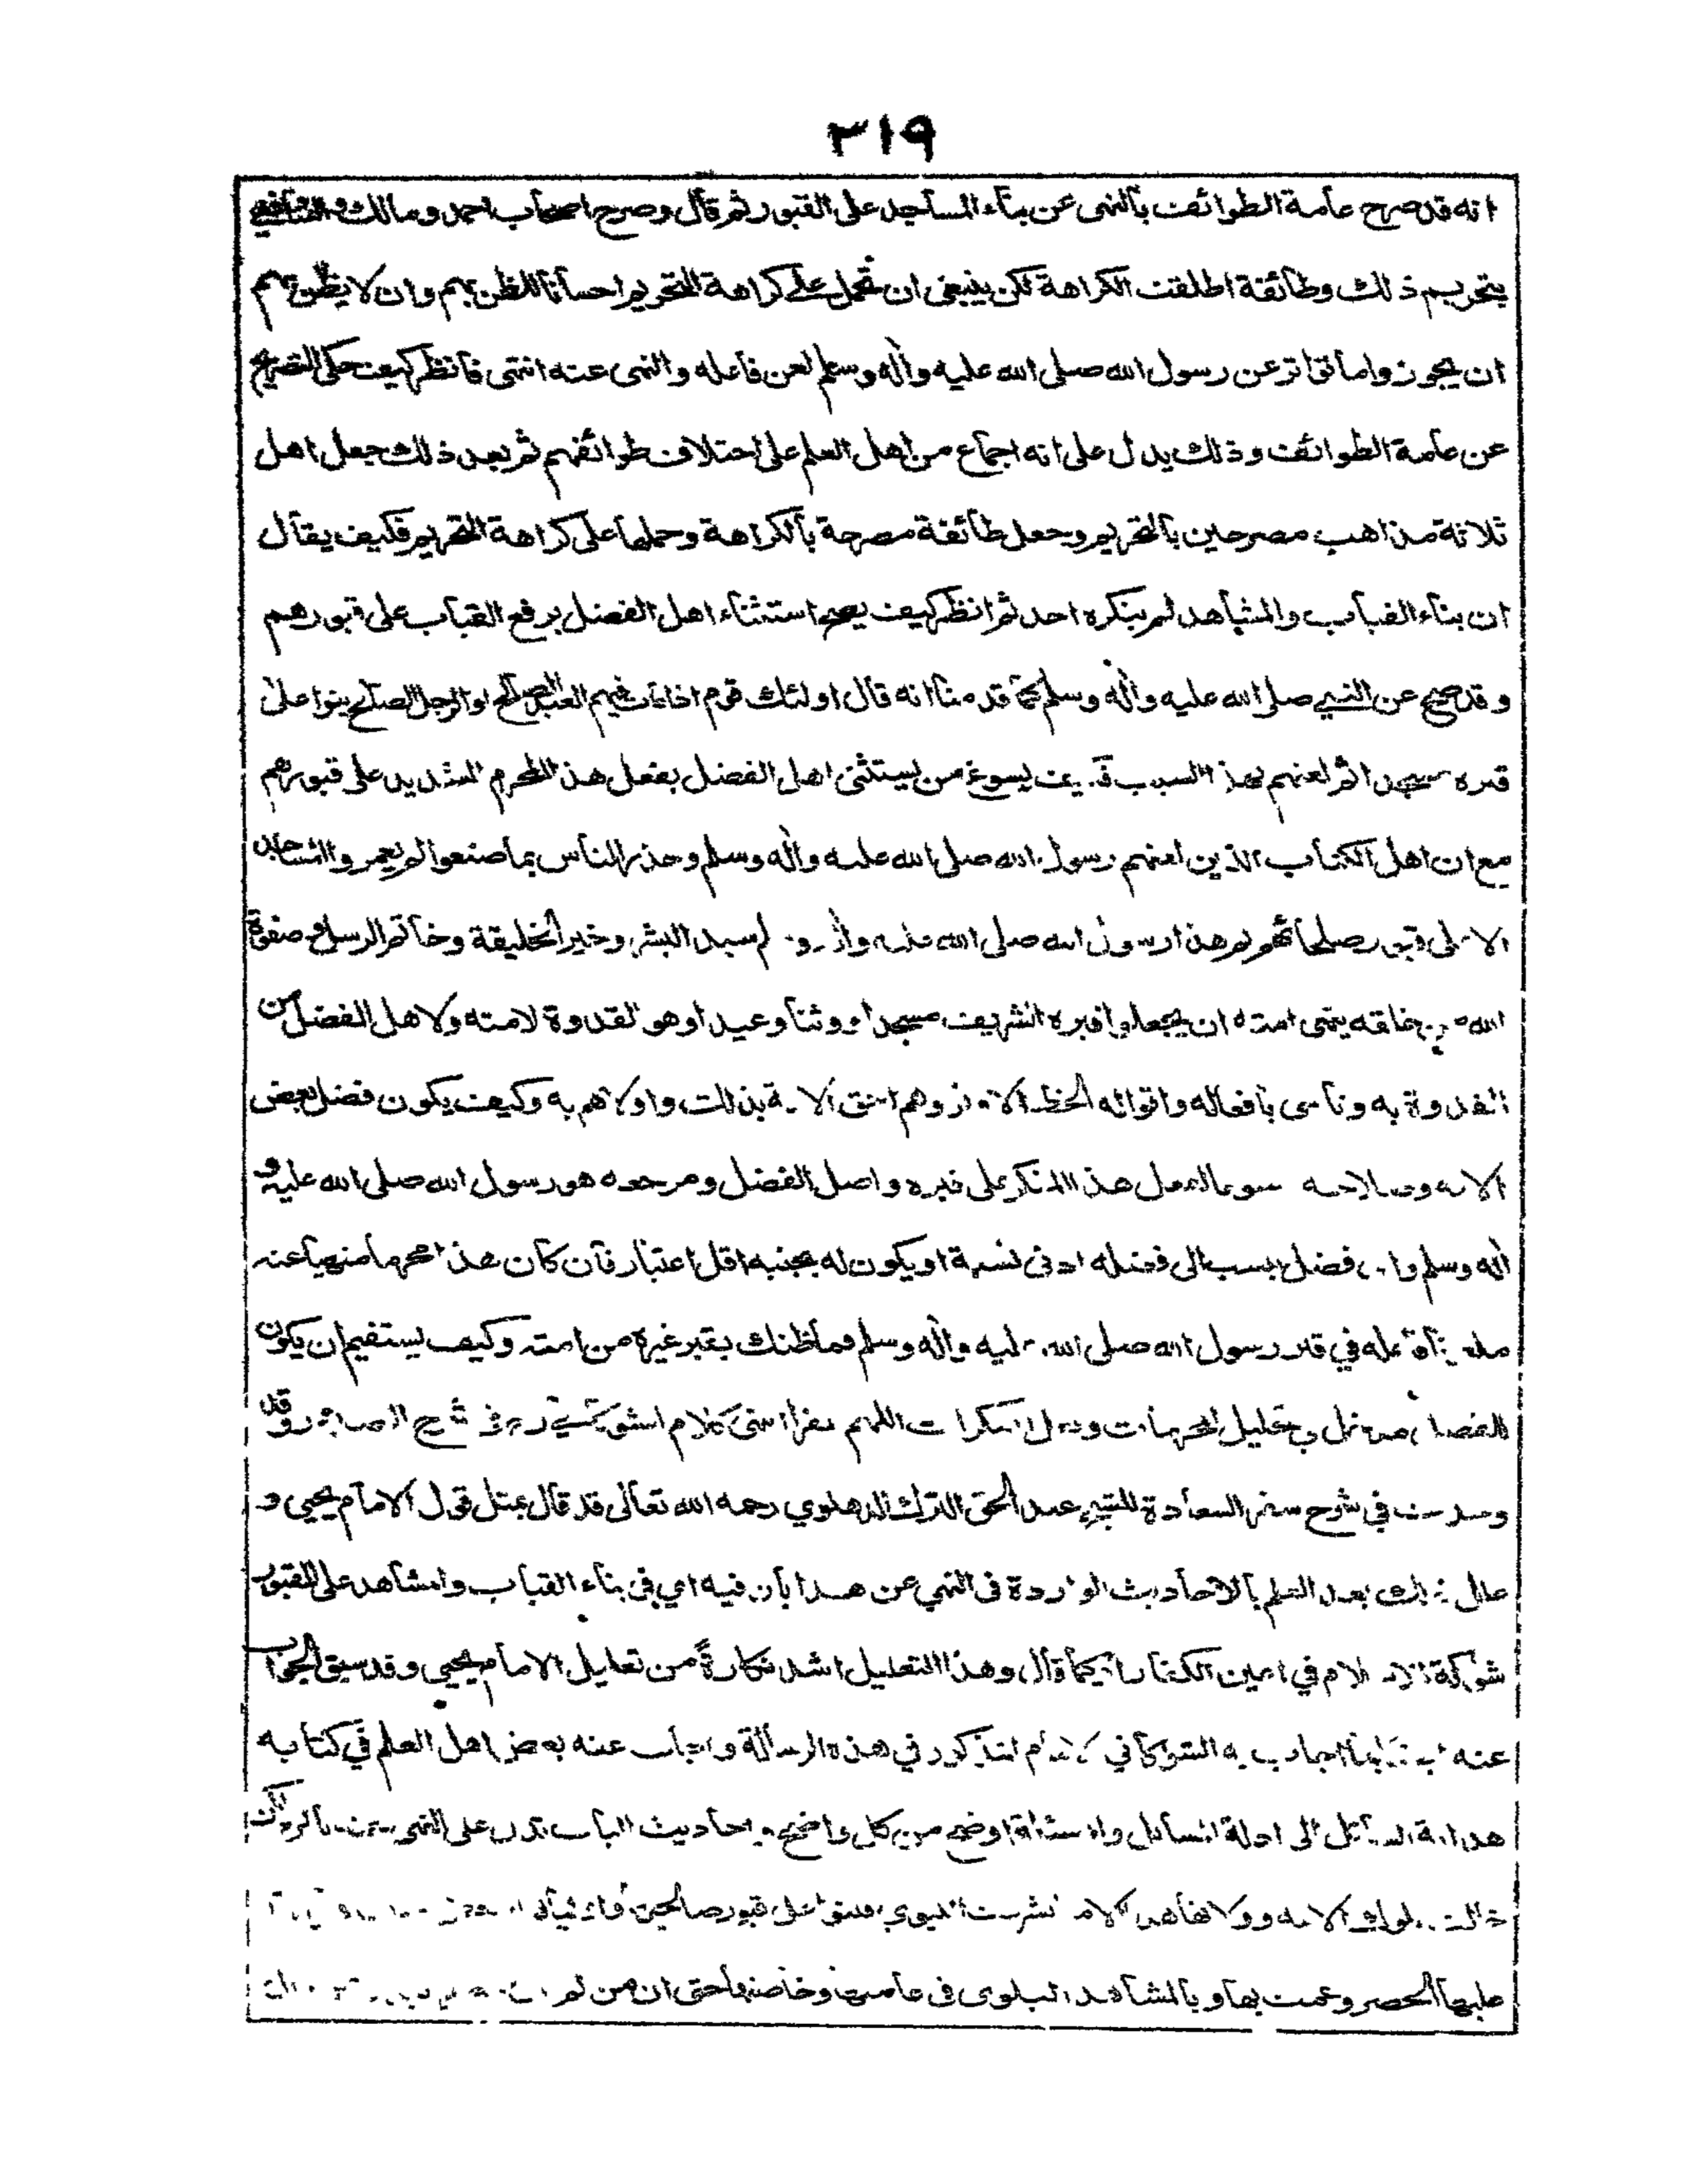 ٣١٩
انه قد صرح عامة الطوائف بالنهى عن بناء المساجد على القبور ثم قال وصرح اصحاب احمد ومالك والشافعي
بتحريم ذلك وطائفة اطلقت الكراهة لكن ينبغى ان تحمل على كراهة التحريم احسانا للظن بهم وان لا يظن بهم
ان يجوزوا ما تواتر عن رسول الله صلى الله عليه واله وسلم لعن فاعله والنهى عنه انتهى فانظر كيف حكى التصريح
عن عامة الطوائف وذلك يدل على انه اجماع من اهل العلم على اختلاف طوائفهم ثم بعد ذلك جعل اهل
ثلاثة مذاهب مصرحين بالتحريم وجعل طائفة مصرحة بالكراهة وحملها على كراهة التحريم فكيف يقال
ان بناء القباب والمشاهد لم ينكره احد ثم انظر كيف يصح استثناء اهل الفضل برفع القباب على قبورهم
وقد صح عن النبي صلى الله عليه واله وسلم كما قدمنا انه قال اولئك قوم اذا مات فيهم العبد الصالح او الرجل الصالح بنوا على
قبره مسجدا ثم لعنهم بهذا السبب فكيف يسوغ من يستثنى اهل الفضل بفعل هذا المحرم الشديد على قبورهم
مع ان اهل الكتاب الذين لعنهم رسول الله صلى الله عليه واله وسلم وحذر الناس بما صنعوا لم يعمروا المساجد
الا على قبور صلحائهم ثم هذا رسول الله صلى الله عليه واله وسلم سيد البشر وخير الخليقة وخاتم الرسل وصفوة
الله من خلقه ينهى امته ان يجعلوا قبره الشريف مسجدا او وثنا وعيدا وهو القدوة لامته ولاهل الفضل من
القدوة به وتاسى بافعاله واقواله الحظ الاوفر وهم احق الامة بذلك واولاهم به وكيف يكون فضل بعض
الامة وصلاحه مسوغا لفعل هذا المنكر على قبره واصل الفضل ومرجعه هو رسول الله صلى الله عليه و
اله وسلم واى فضل ينسب الى فضله ادنى نسبة او يكون له بجنبه اقل اعتبار فان كان هذا محرما منهيا عنه
ملعونا فاعله في قبر رسول الله صلى الله عليه واله وسلم فما ظنك بقبر غيره من امته وكيف يستقيم ان يكون
للفضل مدخل في تحليل المحرمات وفعل المنكرات اللهم غفرا انتهى كلام الشوكاني رح في شرح الصدور وقد
في شرح سفر السعادة للشيخ عبد الحق الترك الدهلوي رحمه الله تعالى قد قال بمثل قول الامام يحيى و
علل ذلك بعد العلم بالاحاديث الواردة فى النهي عن هذا بان فيه اي فى بناء القباب والمشاهد على القبور
شوكة الاسلام في اعين الكفار كما قال وهذا التعليل اشد نكارةً من تعليل الامام يحيى وقد سبق الجواب
عنه اجاب به الشوكاني المذكور في هذه الرسالة واجاب عنه بعض اهل العلم في كتابه
هداية السائل الى ادلة المسائل اوضح من كل واضح واحاديث الباب تدل على النهى
قبور صالحين
عليها الحصر وعمت بها وبالمشاهد البلوى فى عامتها وخاصتها حتى ان من لم